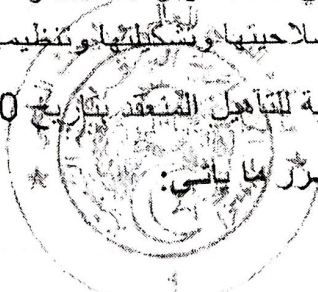 صلاحيتها وتشكيلتها وتنظيم
ة للتأهيل المنعقد بتاريخ 0
يقرر ما يأتي: